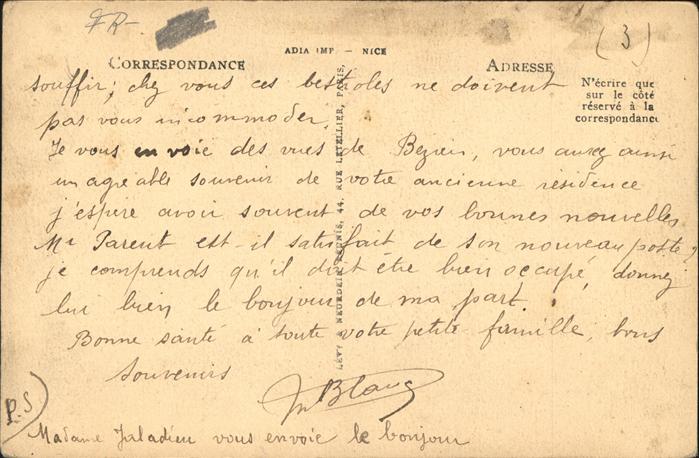 FR-
(3)
ADIA IMP - NICE
CORRESPONDANCE
ADRESSE
N'écrire que
sur le côté
réservé à la
correspondance
LÉVY & NEURDEIN RÉUNIS, 44, RUE LETELLIER, PARIS.
souffir; chez vous ces bestioles ne doivent
pas vous incommoder.
Je vous envoie des vues de Beziers, vous aurez ainsi
un agréable souvenir de votre ancienne résidence
j'espère avoir souvent de vos bonnes nouvelles
Mr Parent est-il satisfait de son nouveau poste?
je comprends qu'il doit être bien occupé, donnez
lui bien le bonjour de ma part.
Bonne santé à toute votre petite famille, bons
souvenirs
Blanc
P.S
Madame Jaladieu vous envoie le bonjour